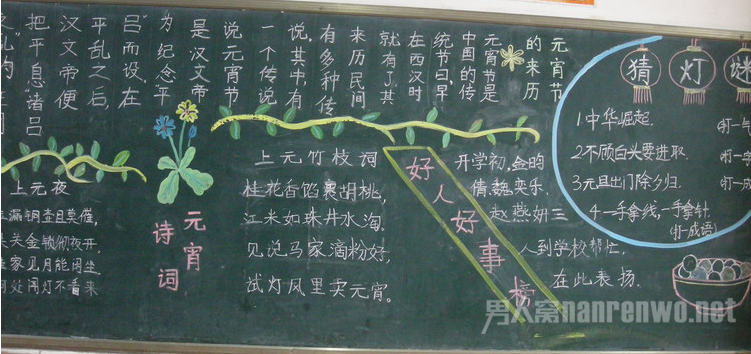 元宵节
的来历
元宵节是
中国的传
统节曰,早
在西汉时
就有了其
来历民间
有多种传
说,其中,有
一个传说
说元宵节
是汉文帝
为纪念平
吕"而设,在
平乱之后,
汉文帝便
把平息"诸吕
上元夜
漏铜查且莫催,
关金锁彻夜开,
家见月能闲坐
何处闻灯不看来
元宵
诗词
上元竹枝词
桂花香馅裹胡桃,
江米如珠井水淘.
见说马家滴粉好,
试灯风里卖元宵。
好人好事榜
开学初,金昀
倩,魏奕乐,
赵燕妍三
人到学校帮忙,
在此表扬.
猜灯谜
1中华崛起. (打一
2不顾白头要进取. (打一
3元旦出门除夕归. (打一
4一手拿线,一手拿针.
(打一成语)
男人窝nanrenwo.net